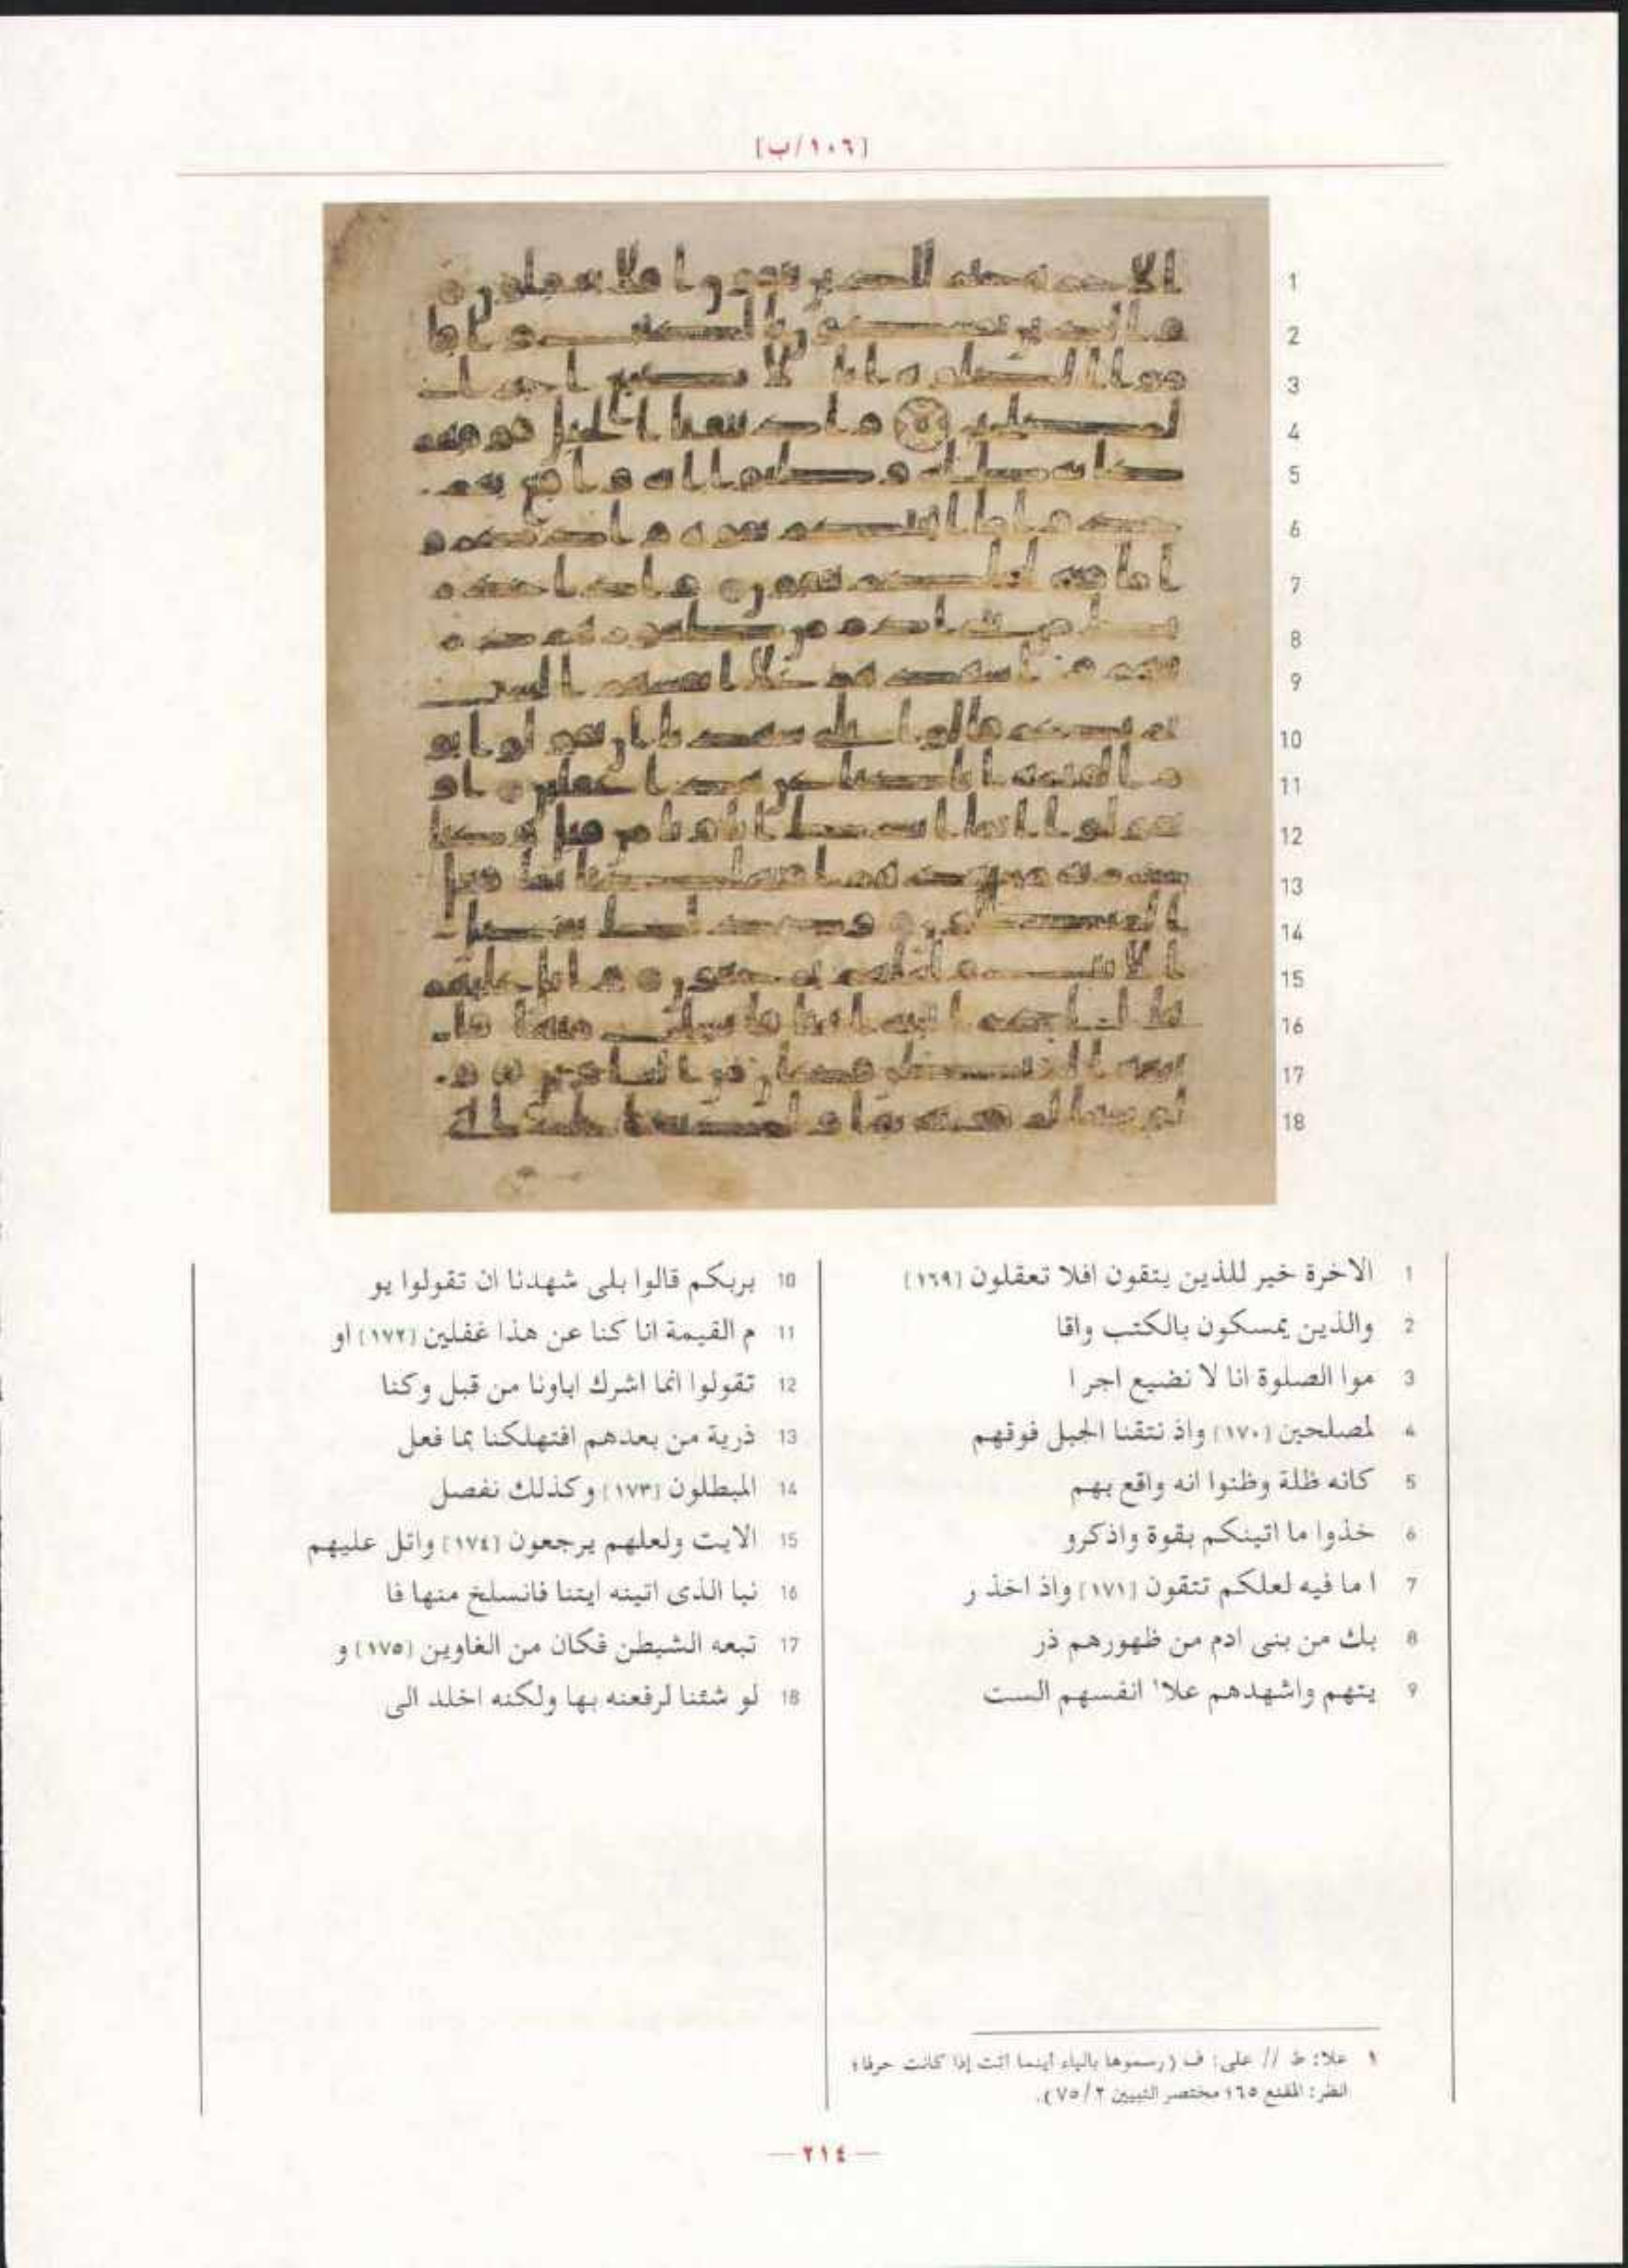 [١٠٦/ب]
1
2
3
4
5
6
7
8
9
10
11
12
13
14
15
16
17
18
1 الاخرة خير للذين يتقون افلا تعقلون [١٦٩]
2 والذين يمسكون بالكتب واقا
3 موا الصلوة انا لا نضيع اجر ا
4 لمصلحين [١٧٠] واذ نتقنا الجبل فوقهم
5 كانه ظلة وظنوا انه واقع بهم
6 خذوا ما اتينكم بقوة واذكرو
7 ا ما فيه لعلكم تتقون [١٧١] واذ اخذ ر
8 بك من بنى ادم من ظهورهم ذر
9 يتهم واشهدهم علا١ انفسهم الست
10 بربكم قالوا بلى شهدنا ان تقولوا يو
11 م القيمة انا كنا عن هذا غفلين [١٧٢] او
12 تقولوا انما اشرك اباونا من قبل وكنا
13 ذرية من بعدهم افتهلكنا بما فعل
14 المبطلون [١٧٣] وكذلك نفصل
15 الايت ولعلهم يرجعون [١٧٤] واتل عليهم
16 نبا الذى اتينه ايتنا فانسلخ منها فا
17 تبعه الشيطن فكان من الغاوين [١٧٥] و
18 لو شئنا لرفعنه بها ولكنه اخلد الى
١ علا: ط // على: ف (رسموها بالياء أينما أتت إذا كانت حرفا؛
انظر: المقنع ٦٥؛ مختصر التبيين ٢/٧٥).
— ٢١٤ —